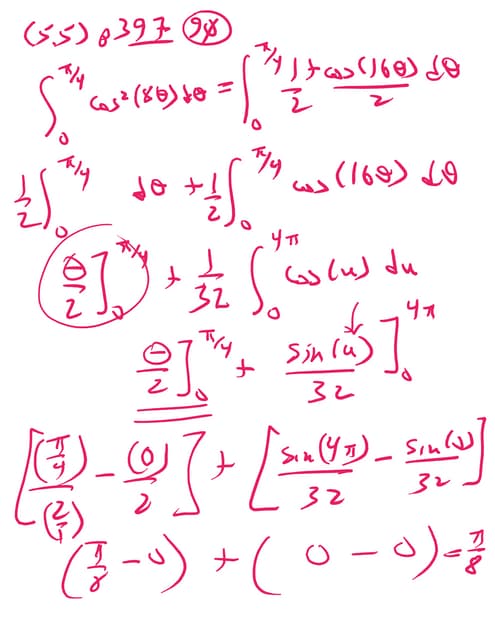 (5.5) p 397 98
∫₀^{π/4} cos²(8θ)dθ = ∫₀^{π/4} 1/2 + cos(16θ)/2 dθ
1/2 ∫₀^{π/4} dθ + 1/2 ∫₀^{π/4} cos(16θ) dθ
θ/2 ]₀^{π/4} + 1/32 ∫₀^{4π} cos(u) du
θ/2 ]₀^{π/4} + sin(u)/32 ]₀^{4π}
[ (π/4)/(2/1) − (0)/2 ] + [ sin(4π)/32 − sin(0)/32 ]
(π/8 − 0) + ( 0 − 0) = π/8